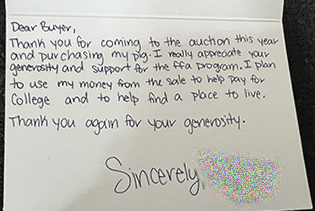 Dear Buyer,
Thank you for coming to the auction this year
and purchasing my pig. I really appreciate your
generosity and support for the ffa program. I plan
to use my money from the sale to help pay for
College and to help find a place to live.
Thank you again for your generosity.
Sincerely,